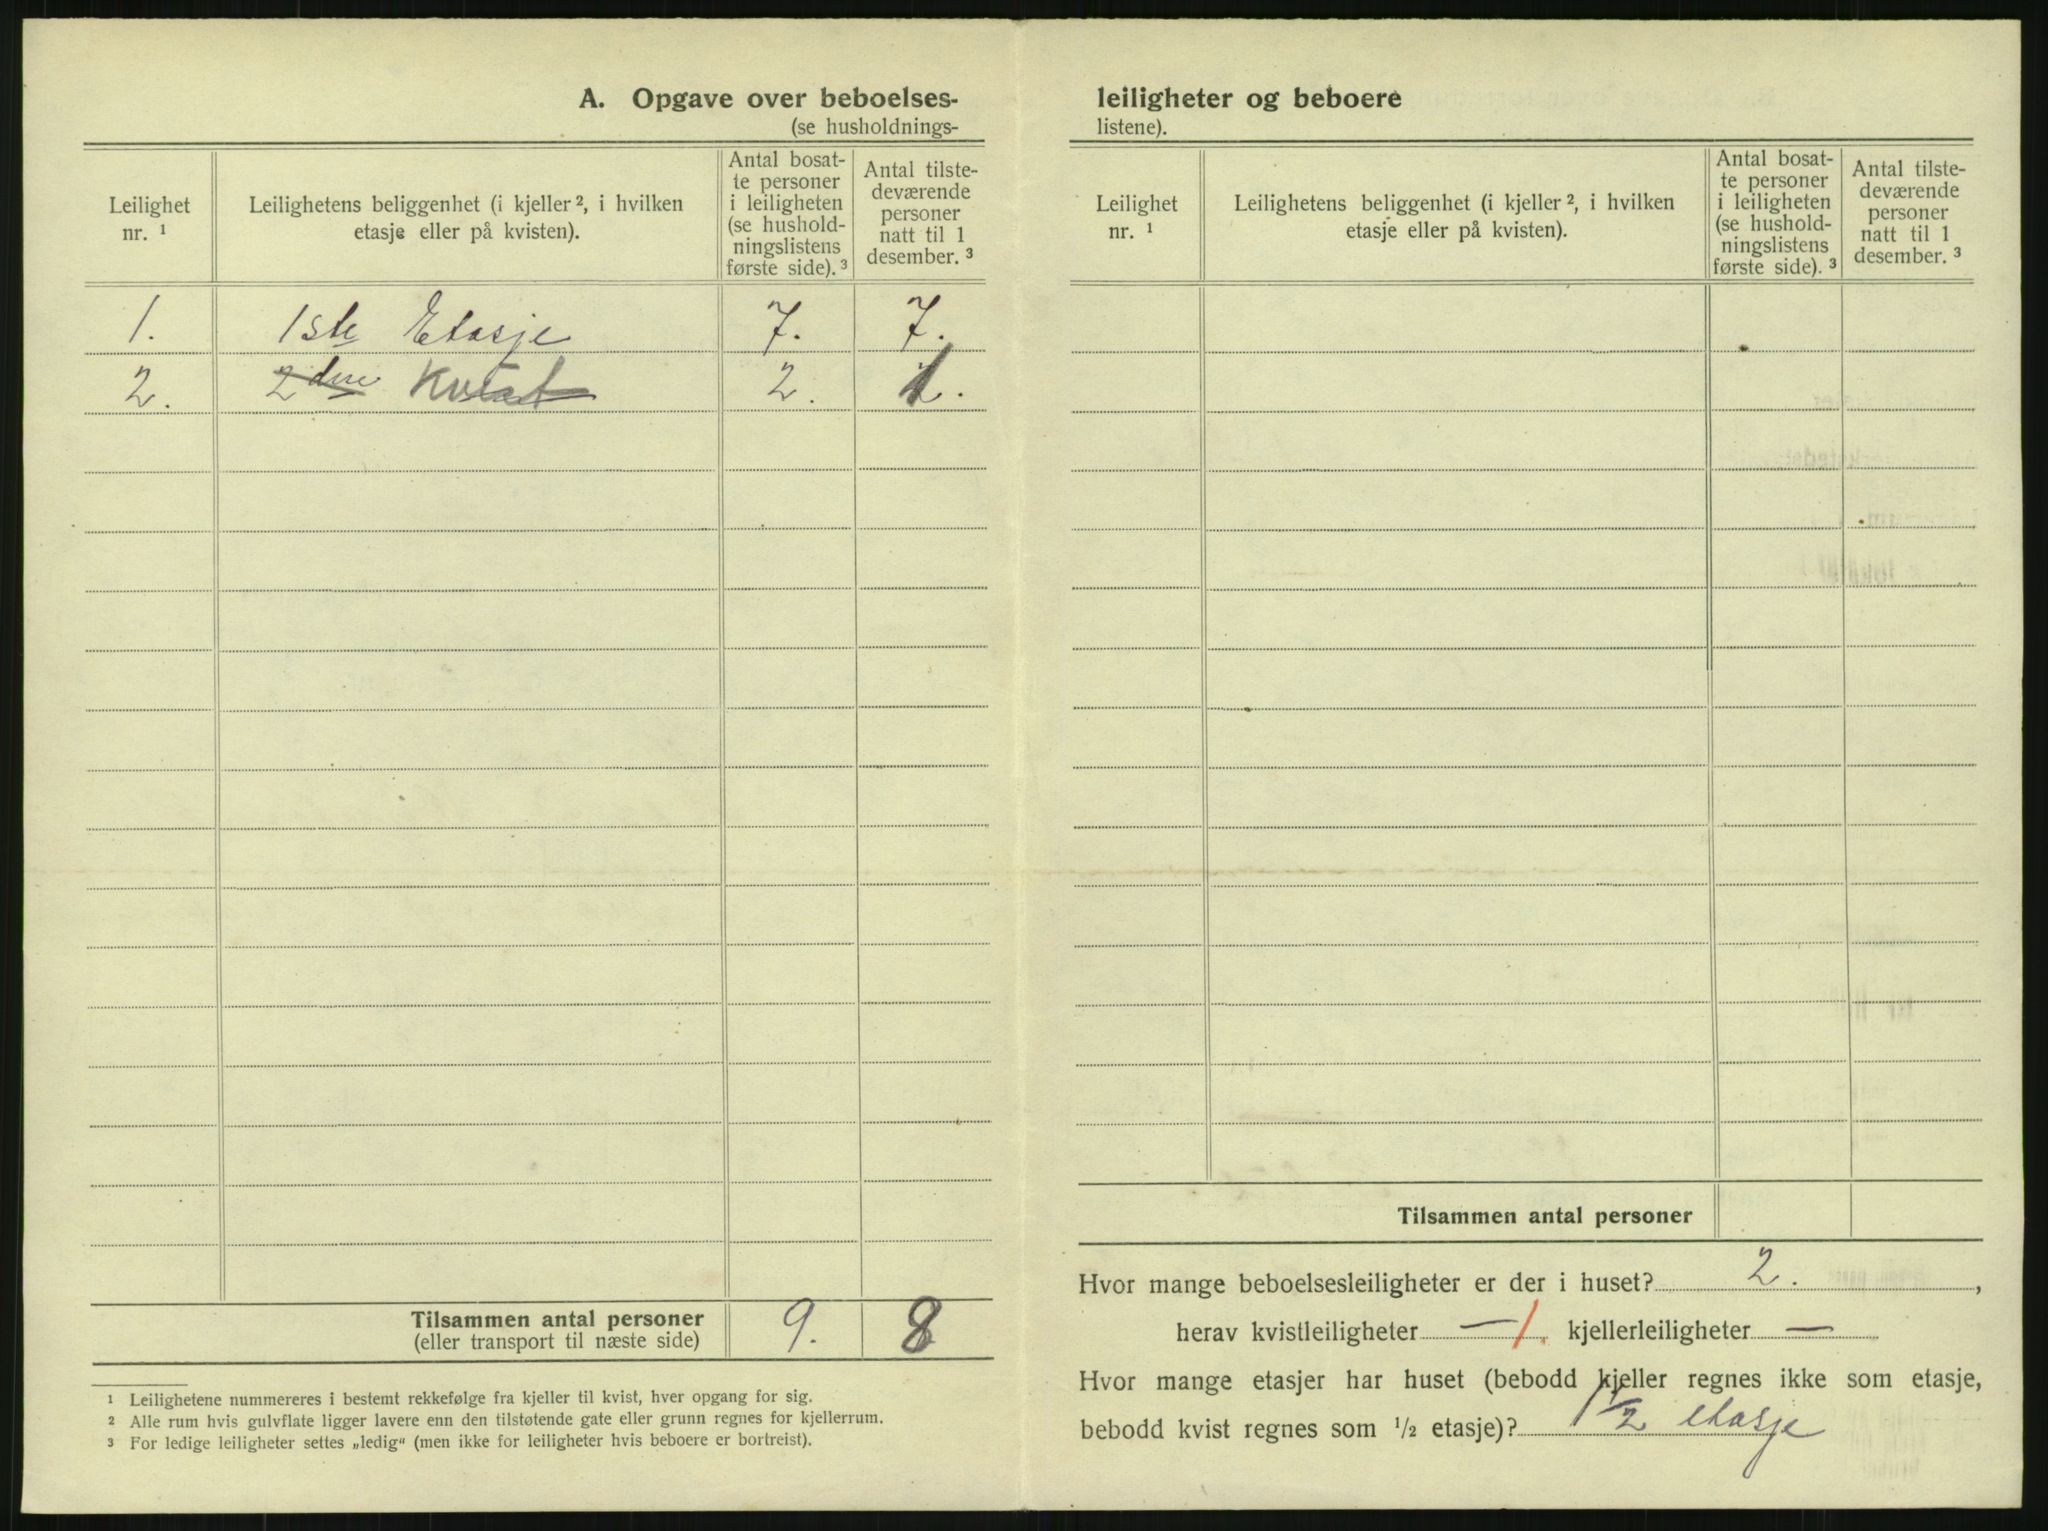 A. Opgave over beboelses-
(se husholdnings-
Leilighet
nr. ¹
Leilighetens beliggenhet (i kjeller ², i hvilken
etasje eller på kvisten).
Antal bosat-
te personer
i leiligheten
(se hushold-
ningslistens
første side). ³
Antal tilste-
deværende
personer
natt til 1
desember. ³
1. 1ste Etasje 7. 7.
2. 2den Kvist 2. 1.
Tilsammen antal personer 9. 8
(eller transport til næste side)
¹ Leilighetene nummereres i bestemt rekkefølge fra kjeller til kvist, hver opgang for sig.
² Alle rum hvis gulvflate ligger lavere enn den tilstøtende gate eller grunn regnes for kjellerrum.
³ For ledige leiligheter settes „ledig“ (men ikke for leiligheter hvis beboere er bortreist).
leiligheter og beboere
listene).
Leilighet
nr. ¹
Leilighetens beliggenhet (i kjeller ², i hvilken
etasje eller på kvisten).
Antal bosat-
te personer
i leiligheten
(se hushold-
ningslistens
første side). ³
Antal tilste-
deværende
personer
natt til 1
desember. ³
Tilsammen antal personer
Hvor mange beboelsesleiligheter er der i huset? 2. ,
herav kvistleiligheter — 1. kjellerleiligheter —
Hvor mange etasjer har huset (bebodd kjeller regnes ikke som etasje,
bebodd kvist regnes som ½ etasje)? 1½ etasje